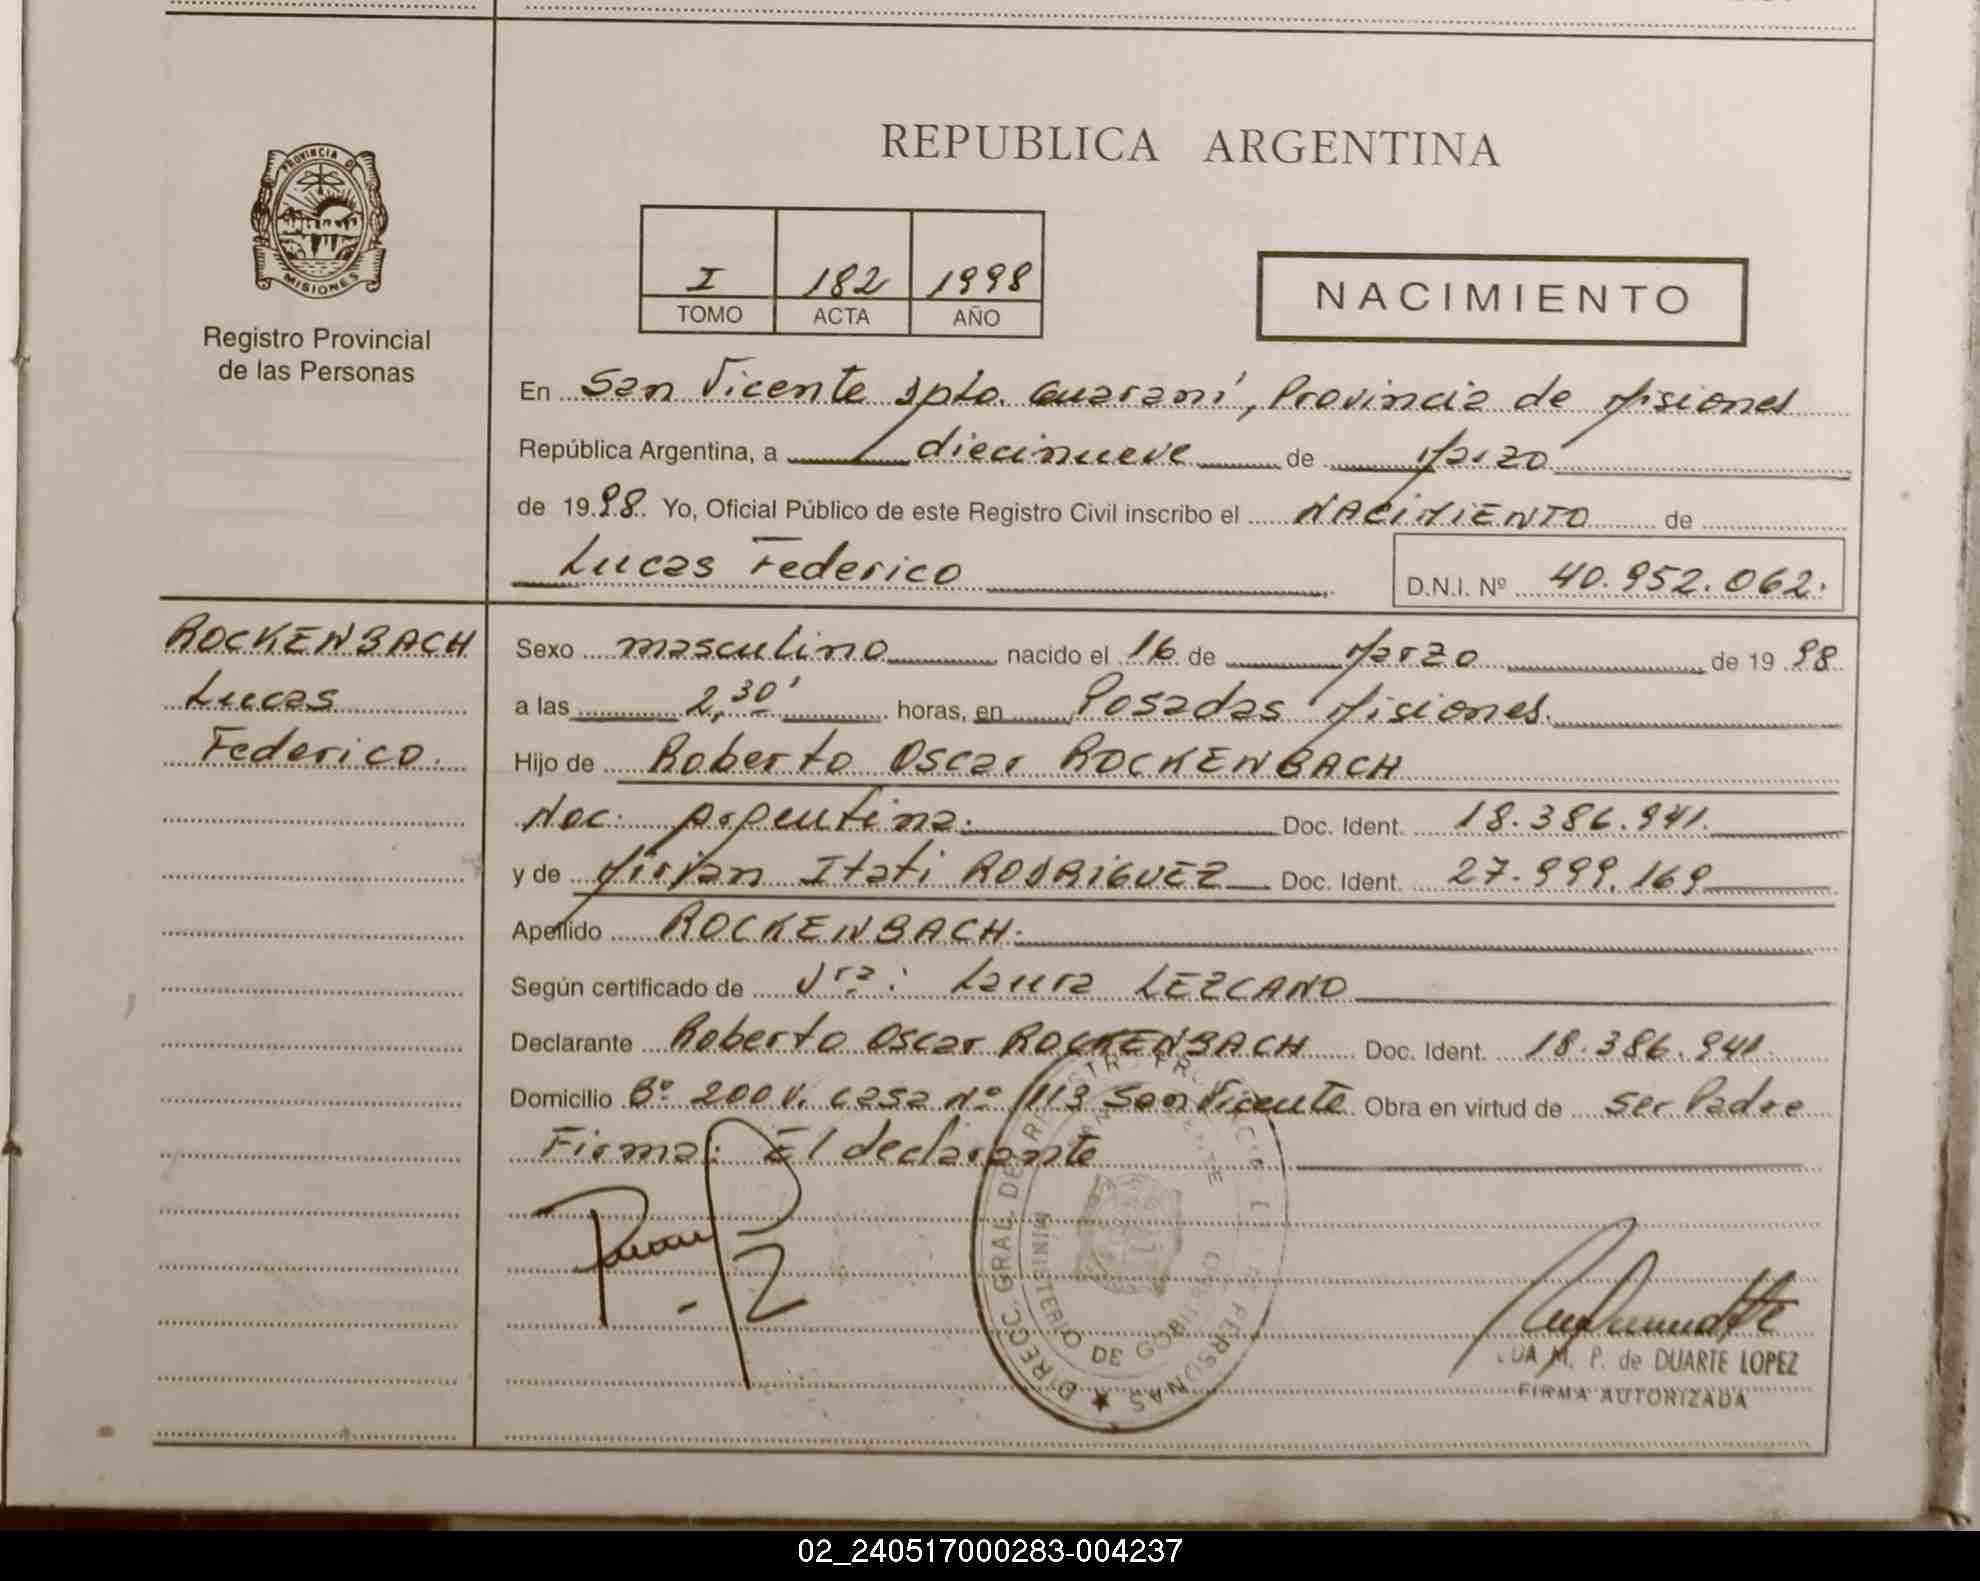 REPUBLICA ARGENTINA
PROVINCIA DE
MISIONES
Registro Provincial
de las Personas
I 182 1998
TOMO ACTA AÑO
NACIMIENTO
En San Vicente Dpto. Guaraní, Provincia de Misiones
República Argentina, a diecinueve de Marzo
de 1998. Yo, Oficial Público de este Registro Civil inscribo el NACIMIENTO de
Lucas Federico
D.N.I. Nº 40.952.062.
ROCKENBACH
Lucas
Federico.
Sexo masculino nacido el 16 de Marzo de 1998
a las 2,30' horas, en Posadas Misiones.
Hijo de Roberto Oscar ROCKENBACH
Nac: Argentina. Doc. Ident. 18.386.941.
y de Mirian Itati RODRIGUEZ Doc. Ident. 27.999.169
Apellido ROCKENBACH.
Según certificado de Dra: Laura LEZCANO
Declarante Roberto Oscar ROCKENBACH Doc. Ident. 18.386.941.
Domicilio Bº 200 V. Casa Nº 113 San Vicente Obra en virtud de ser Padre
Firma: El declarante
DIRECC. GRAL. DE PERSONAS
MINISTERIO DE GOBIERNO
M. P. de DUARTE LOPEZ
FIRMA AUTORIZADA
02_240517000283-004237